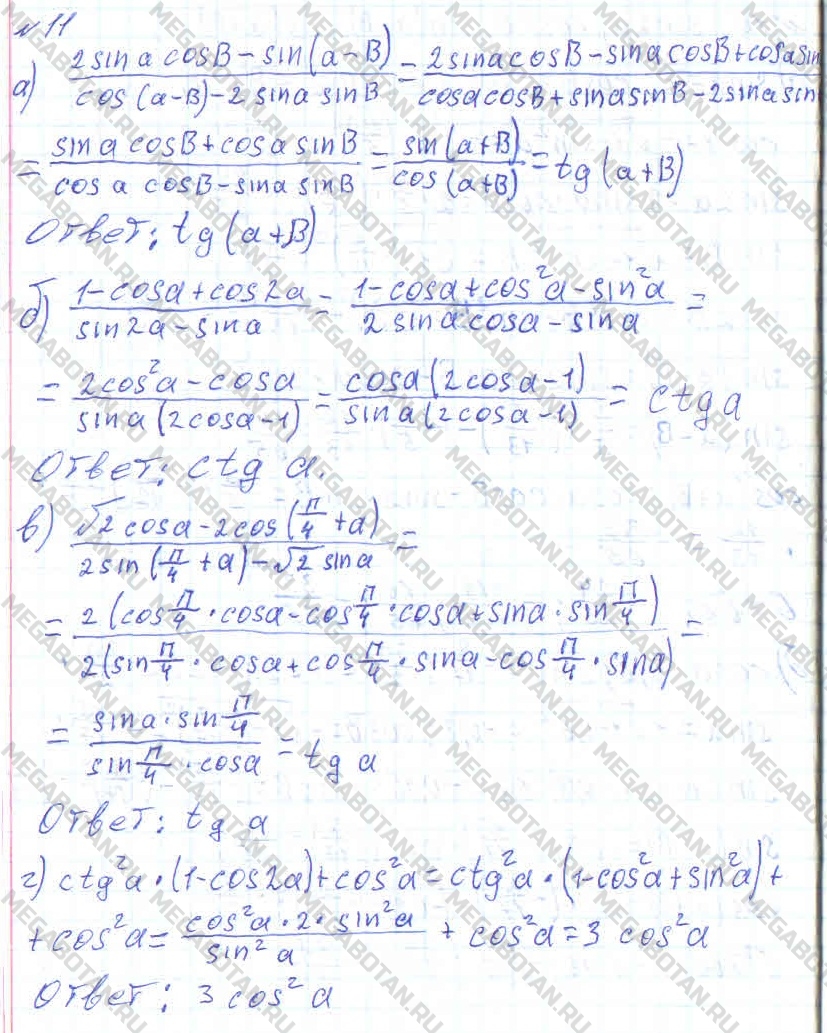 № 11
а) (2 sin a cosB − sin(a−B)) / (cos (a−B) − 2 sina sinB) = (2 sinacosB − sina cosB + cosa sin) / (cosacosB + sinasinB − 2sina sin)
= (sin a cosB + cosa sinB) / (cos a cosB − sina sinB) = sin(a+B) / cos(a+B) = tg(a+B)
Ответ: tg(a+B)
б) (1−cosa + cos2a) / (sin2a − sina) = (1−cosa + cos²a − sin²a) / (2 sina cosa − sina) =
= (2cos²a − cosa) / (sina (2cosa−1)) = (cosa(2cosa−1)) / (sina(2cosa−1)) = ctg a
Ответ: ctg a.
в) (√2 cosa − 2cos(π/4 + a)) / (2sin(π/4 + a) − √2 sina) =
= (2(cos π/4 · cosa − cos π/4 · cosa + sina · sin π/4)) / (2(sin π/4 · cosa + cos π/4 · sina − cos π/4 · sina)) =
= (sina · sin π/4) / (sin π/4 · cosa) = tg a
Ответ: tg a
г) ctg²a · (1−cos2a) + cos²a = ctg²a · (1−cos²a + sin²a) +
+ cos²a = (cos²a · 2 · sin²a) / (sin² a) + cos²a = 3 cos²a
Ответ: 3 cos² a
MEGABOTAN.RU